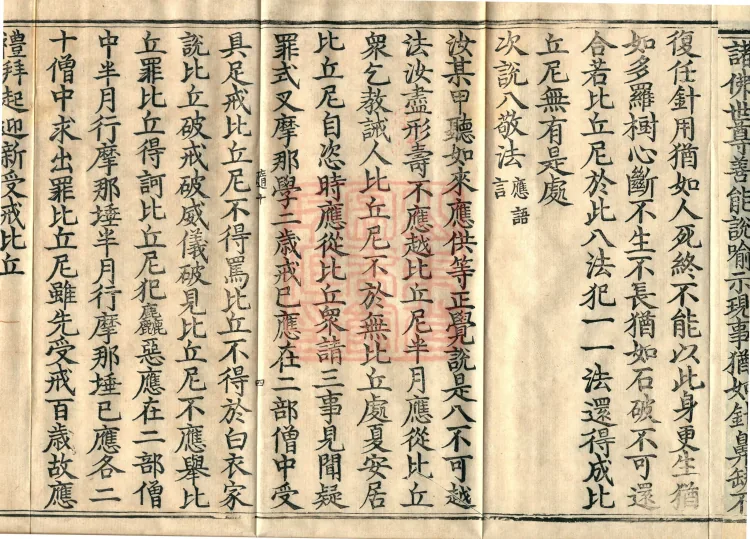 諸佛世尊善能說喻示現事猶如針鼻缺不
復任針用猶如人死終不能以此身更生猶
如多羅樹心斷不生不長猶如石破不可還
合若比丘尼於此八法犯一一法還得成比
丘尼無有是處
次說八敬法應語言
汝某甲聽如來應供等正覺說是八不可越
法汝盡形壽不應越比丘尼半月應從比丘
衆乞教誡人比丘尼不於無比丘處夏安居
比丘尼自恣時應從比丘衆請三事見聞疑
罪式叉摩那學二歲戒已應在二部僧中受
隨十
四
具足戒比丘尼不得罵比丘不得於白衣家
說比丘破戒破威儀破見比丘尼不應舉比
丘罪比丘得訶比丘尼犯麤惡應在二部僧
中半月行摩那埵半月行摩那埵已應各二
十僧中求出罪比丘尼雖先受戒百歲故應
禮拜起迎新受戒比丘